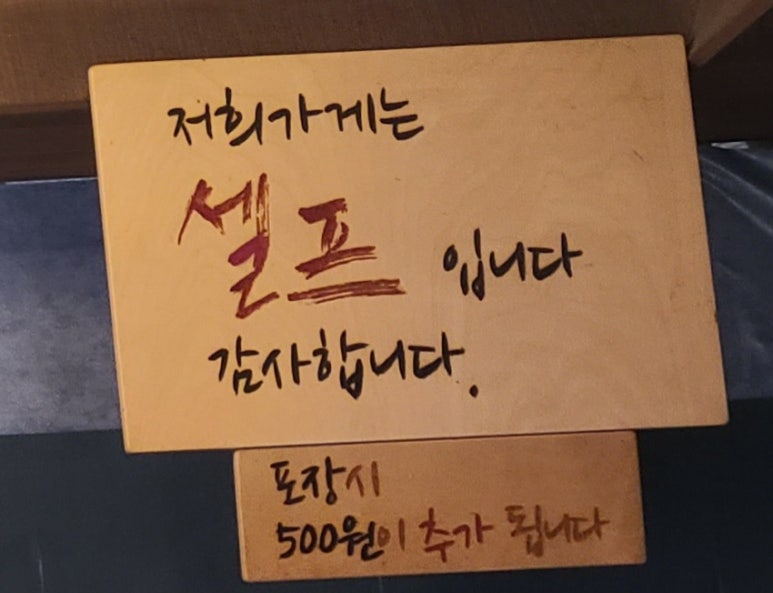 저희가게는
셀프 입니다
감사합니다.
포장시
500원이 추가 됩니다